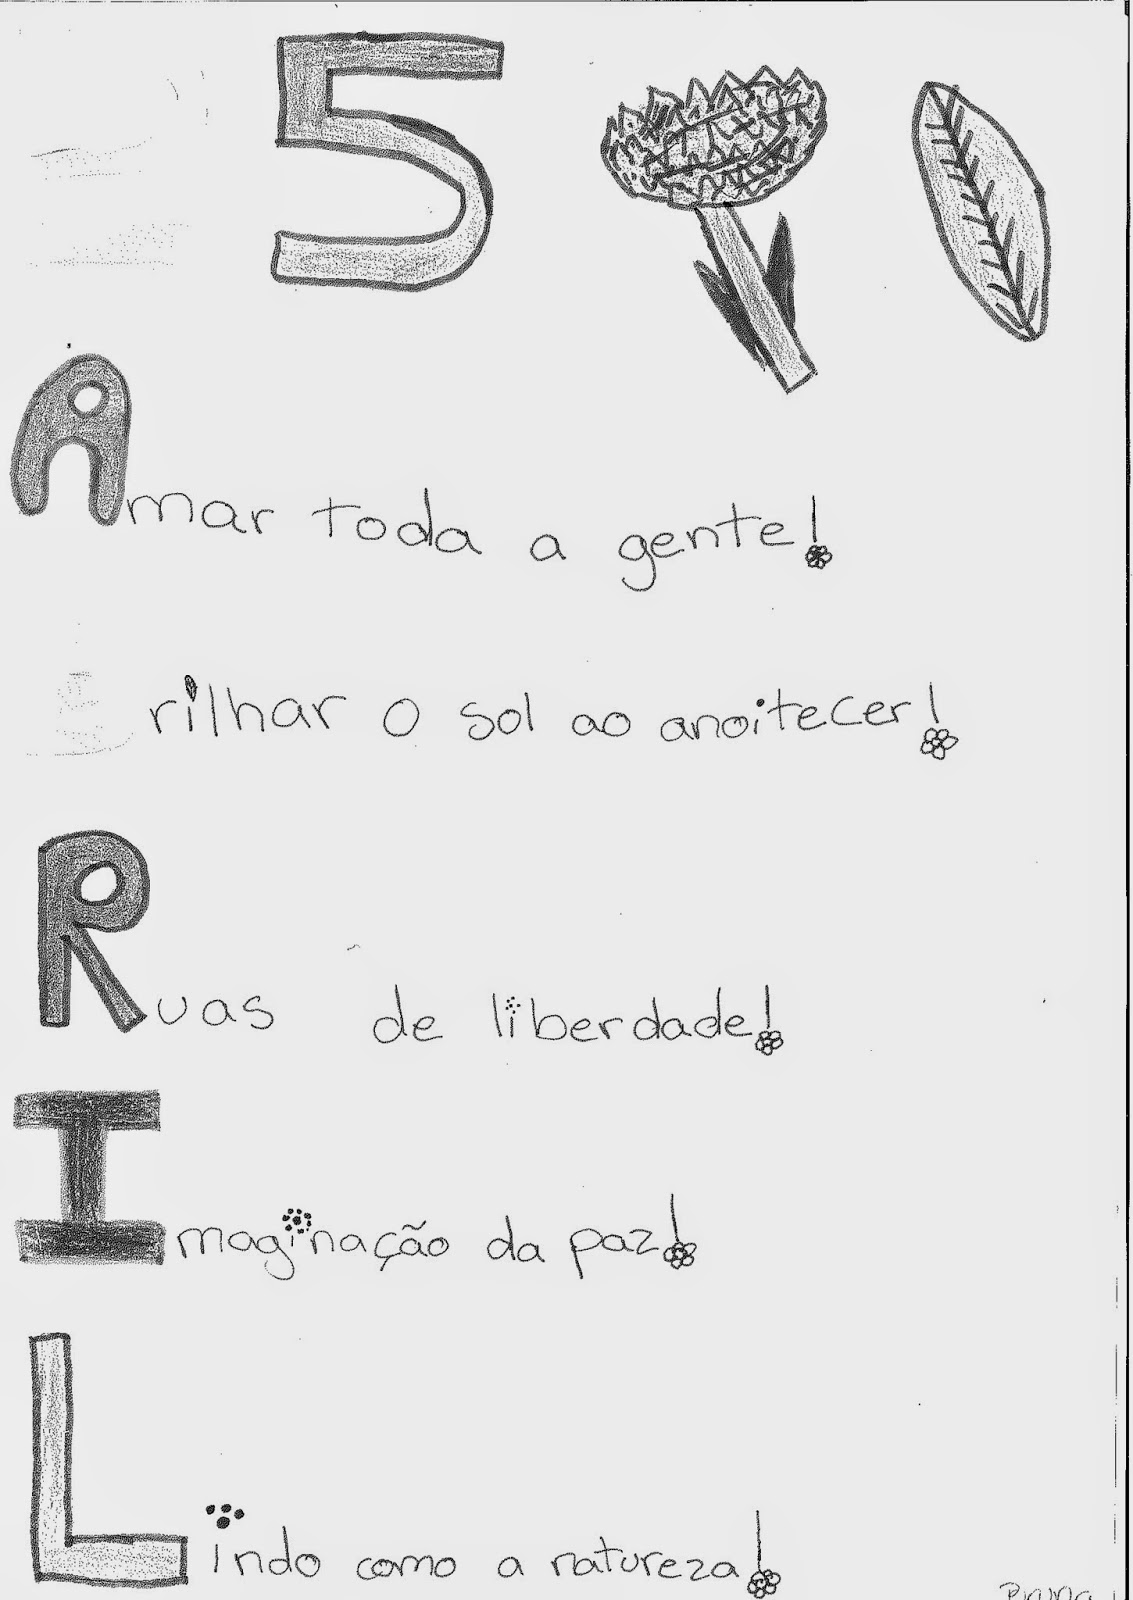 5
Amar toda a gente!
rilhar o sol ao anoitecer!
Ruas de liberdade!
Imaginação da paz!
Lindo como a natureza!